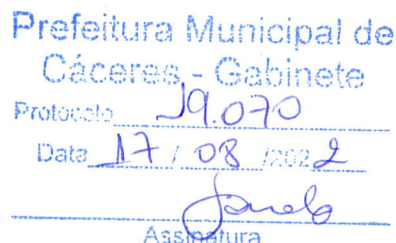 Prefeitura Municipal de
Cáceres - Gabinete
Protocolo 19.070
Data 17 / 08 /2022
Assinatura